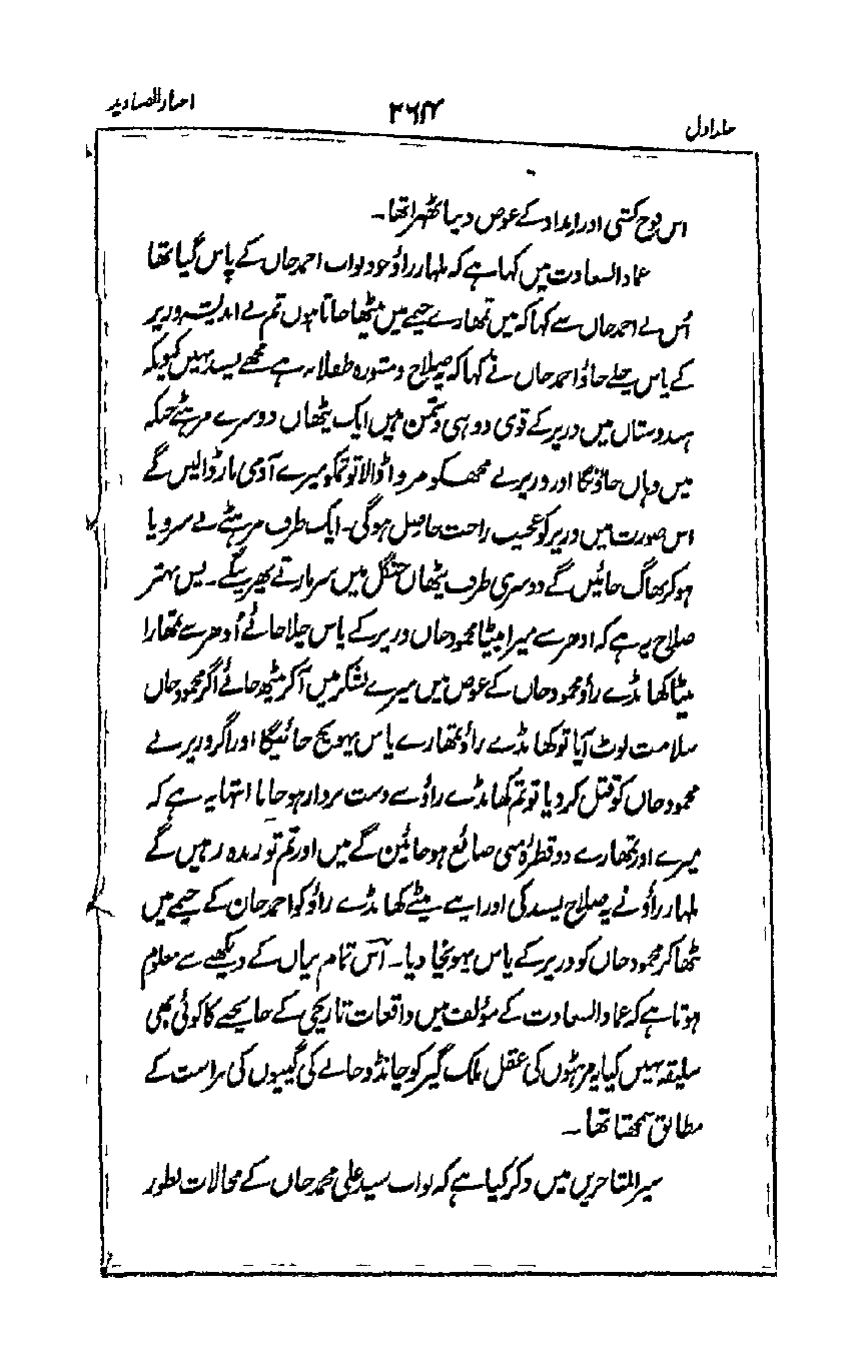 اخبار الصنادید
۲۶۴
جلد اول
اس فوج کشی اور امداد کے عوض دینا ٹھہرا تھا۔
عماد السعادت میں کہا ہے کہ ملہار راؤ خود نواب احمد خاں کے پاس گیا تھا
اُس نے احمد خاں سے کہا کہ میں تمھارے خیمے میں بیٹھا جاتا ہوں تم بے اندیشہ وزیر
کے پاس چلے جاؤ احمد خاں نے کہا کہ یہ صلاح و مشورہ طفلانہ ہے مجھے پسند نہیں کیونکہ
ہندوستان میں وزیر کے قوی دو ہی دشمن ہیں ایک پٹھان دوسرے مرہٹے جبکہ
میں وہاں جاؤنگا اور وزیر نے مجھکو مروا ڈالا تو تمکو میرے آدمی مار ڈالیں گے
اس صورت میں وزیر کو عجیب راحت حاصل ہوگی۔ ایک طرف مرہٹے بے سر و پا
ہو کر بھاگ جائیں گے دوسری طرف پٹھان جنگل میں سر مارتے پھرینگے۔ پس بہتر
صلاح یہ ہے کہ ادھر سے میرا بیٹا محمود خاں وزیر کے پاس چلا جائے اُدھر سے تمھارا
بیٹا کھانڈے راؤ محمود خاں کے عوض میں میرے لشکر میں آکر بیٹھ جائے اگر محمود خاں
سلامت لوٹ آیا تو کھانڈے راؤ تمھارے پاس پہونچ جائیگا اور اگر وزیر نے
محمود خاں کو قتل کر دیا تو تم کھانڈے راؤ سے دست بردار ہو جانا انتہا یہ ہے کہ
میرے اور تمھارے دو قطرۂ منی ضائع ہو جائیں گے میں اور تم تو زندہ رہیں گے
ملہار راؤ نے یہ صلاح پسند کی اور اپنے بیٹے کھانڈے راؤ کو احمد خان کے خیمے میں
بٹھا کر محمود خاں کو وزیر کے پاس پہونچا دیا۔ اس تمام بیان کے دیکھنے سے معلوم
ہوتا ہے کہ عماد السعادت کے مؤلف میں واقعات تاریخی کے جانچنے کا کوئی بھی
سلیقہ نہیں کیا یہ مرہٹوں کی عقل ملک گیر کو چانڈو خانے کی گپیوں کی فراست کے
مطابق سمجھتا تھا۔
سیر المتاخرین میں ذکر کیا ہے کہ نواب سید علی محمد خاں کے محالات بطور